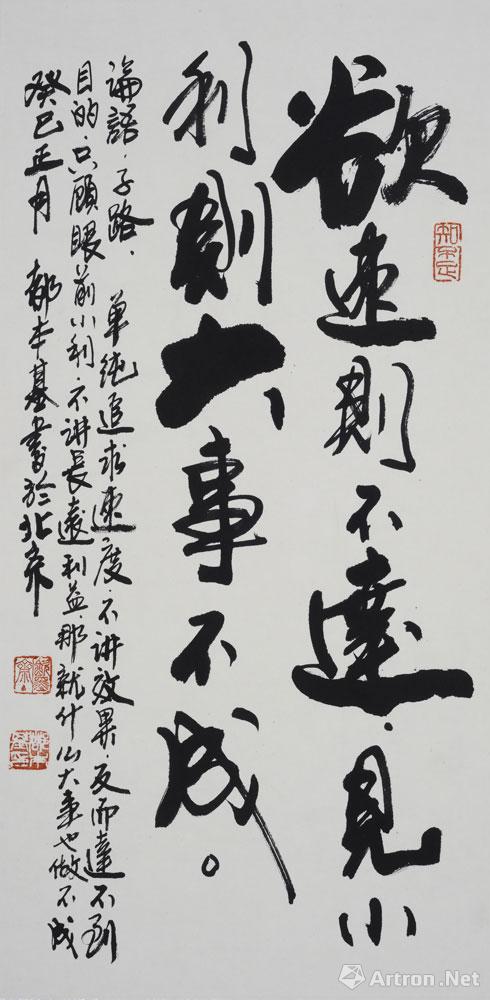 欲速則不達，見小
利則大事不成。
論語·子路，單純追求速度，不讲效果，反而達不到
目的，只顧眼前小利，不讲長遠利益，那就什么大事也做不成
癸巳正月 都本基書於北京
知不足
Artron.Net